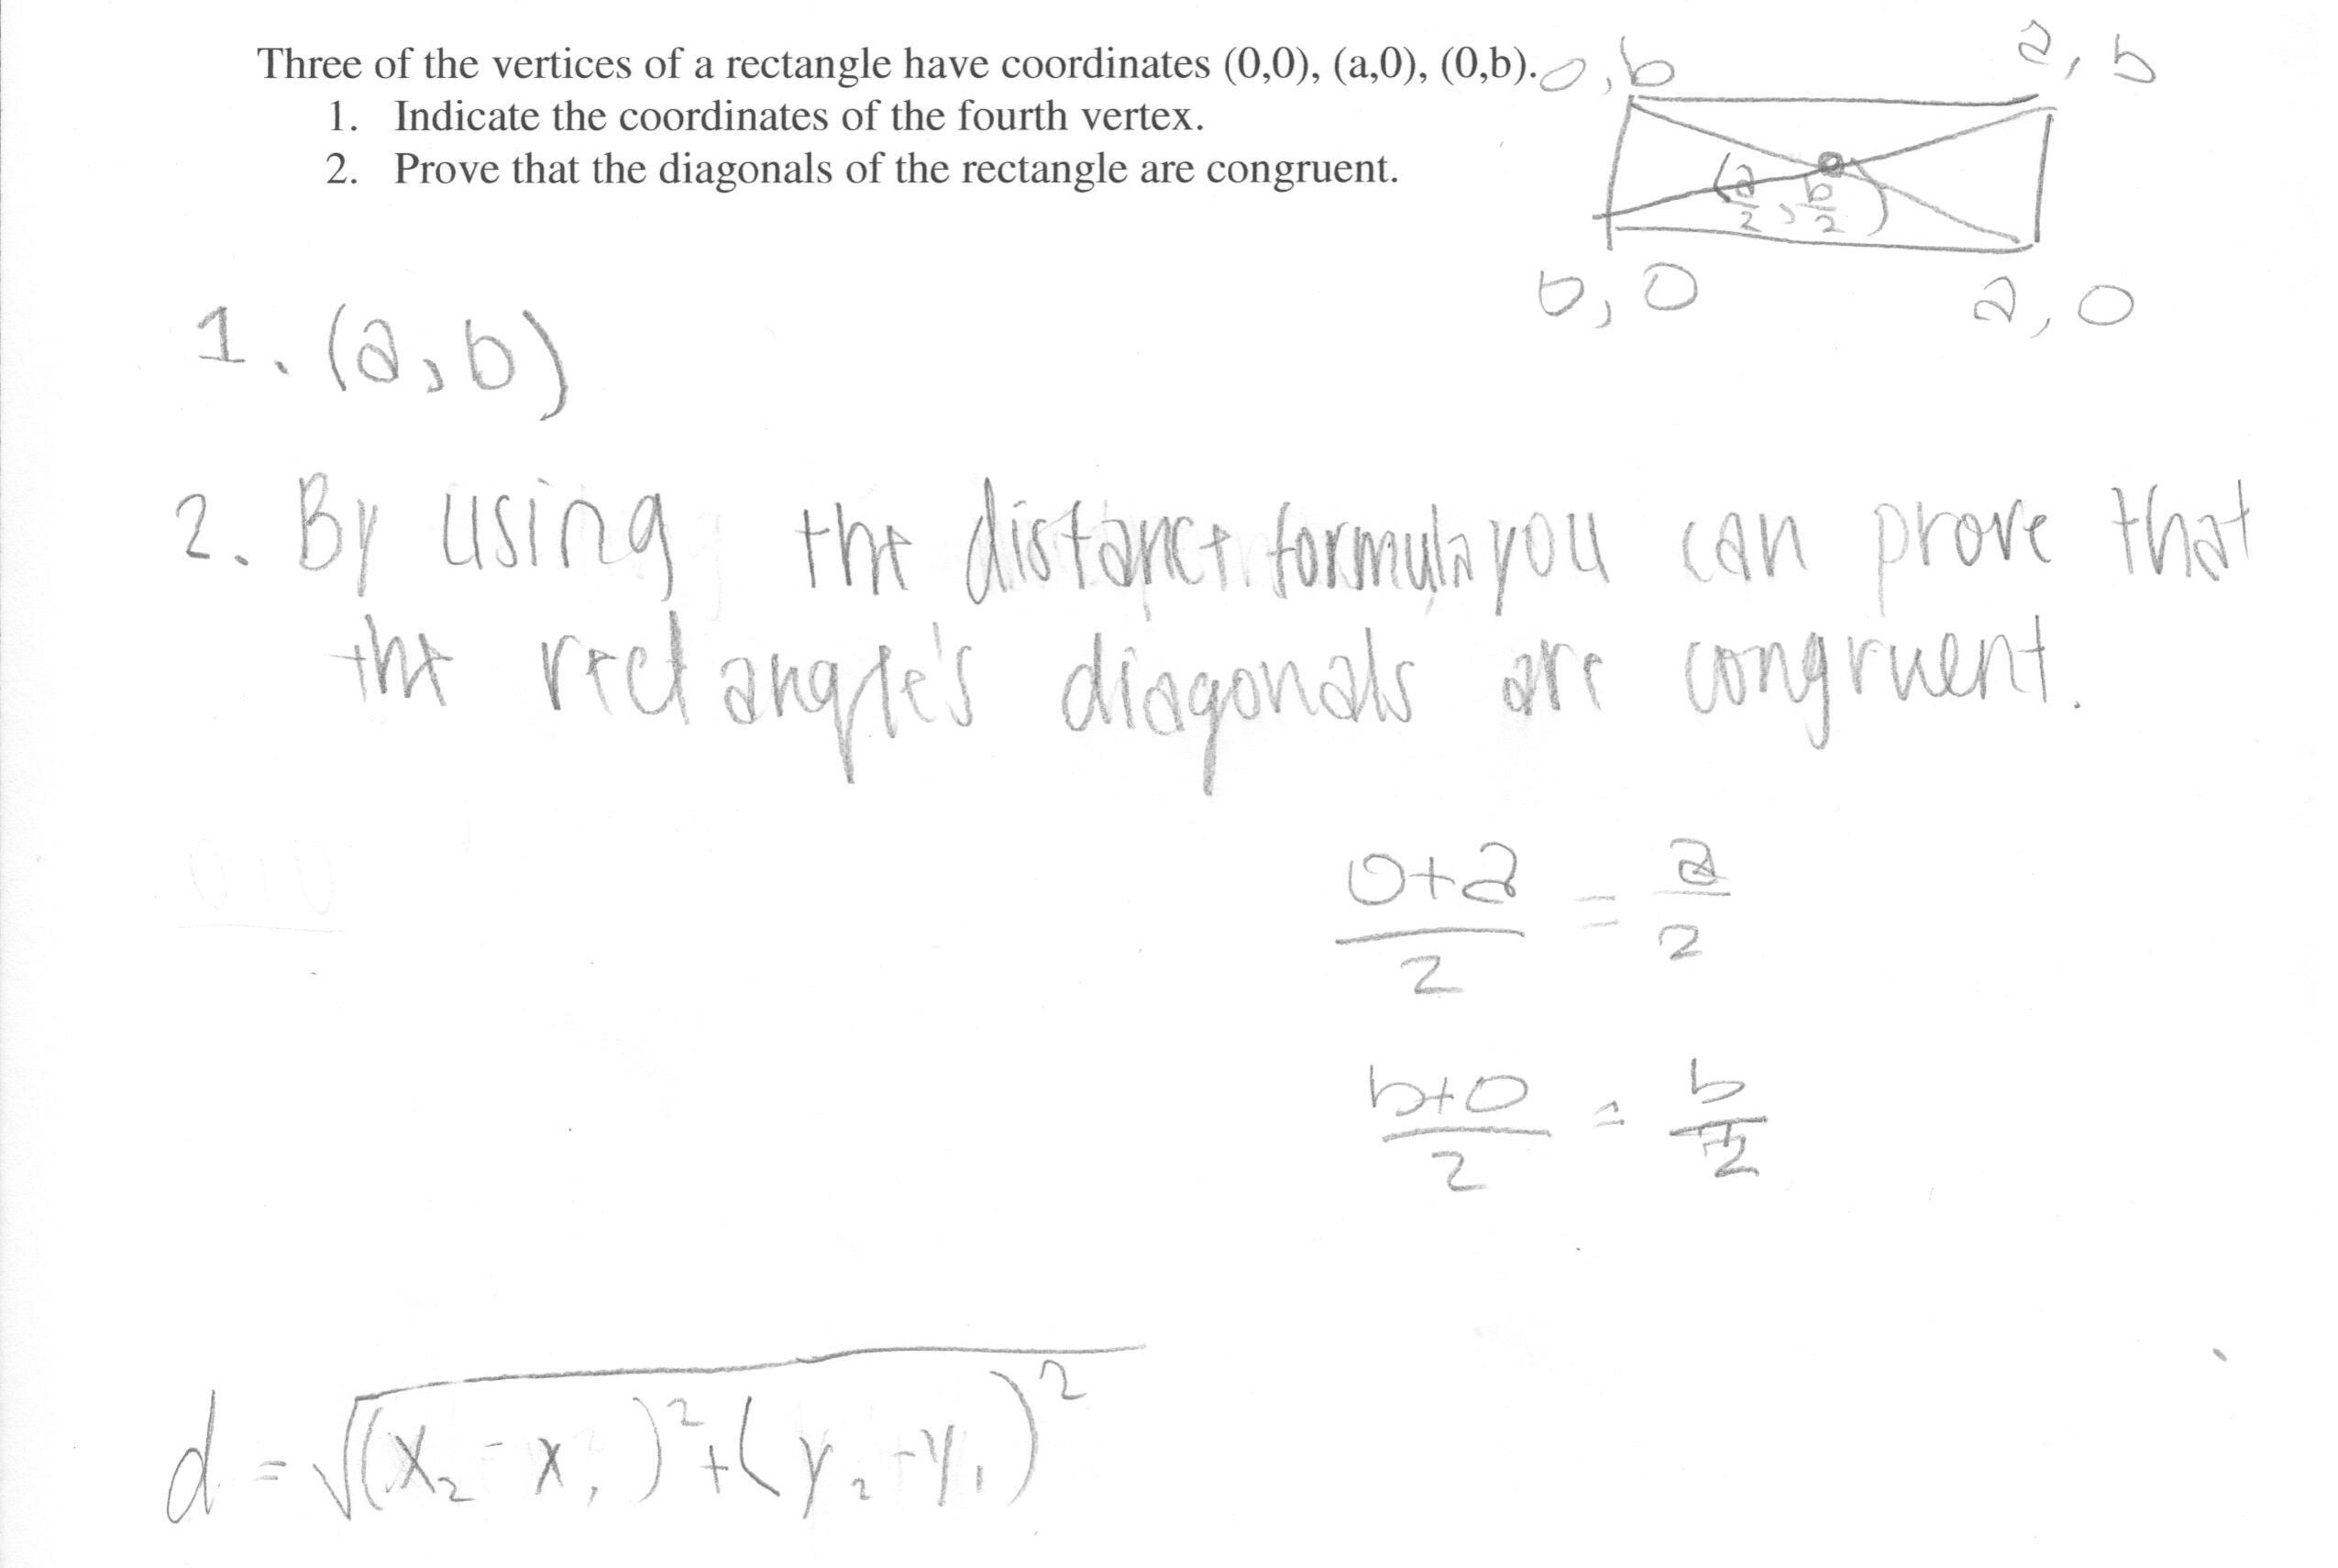 Three of the vertices of a rectangle have coordinates (0,0), (a,0), (0,b).
1. Indicate the coordinates of the fourth vertex.
2. Prove that the diagonals of the rectangle are congruent.
0, b
a, b
(a/2, b/2)
0, 0
a, 0
1. (a, b)
2. By using the distance formula you can prove that
the rectangle's diagonals are congruent.
0+a/2 = a/2
b+0/2 = b/2
d = √(x₂ - x₁)² + (y₂ - y₁)²